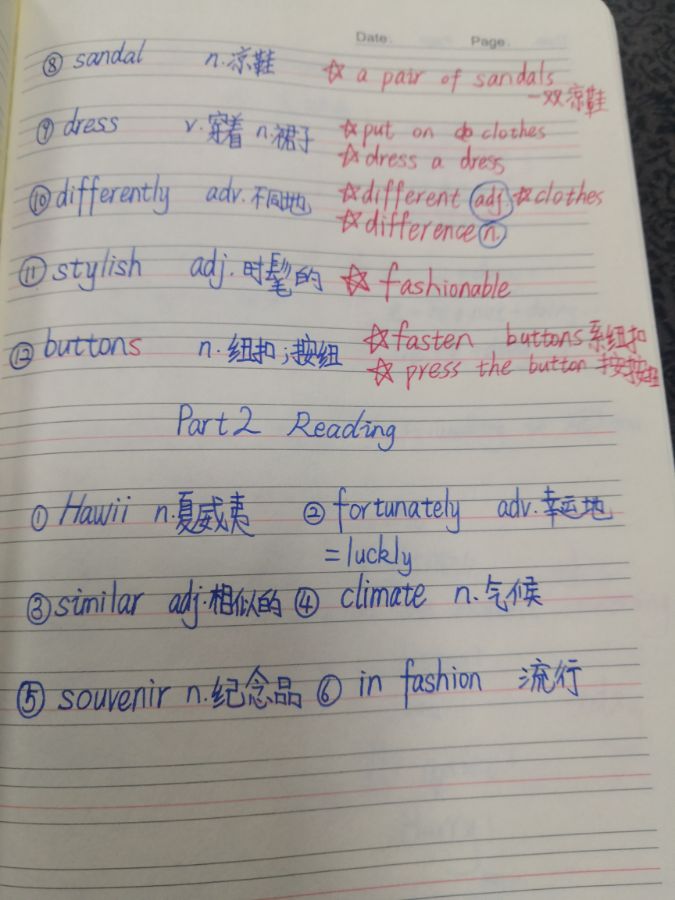 Date. Page.
⑧ sandal n.凉鞋 ☆ a pair of sandals
一双凉鞋
⑨ dress v.穿着 n.裙子 ☆ put on clothes
☆ dress a dress
⑩ differently adv.不同地 ☆ different adj. ☆ clothes
☆ difference n.
⑪ stylish adj.时髦的 ☆ fashionable
⑫ buttons n.纽扣;按纽 ☆ fasten buttons 系纽扣
☆ press the button 按按纽
Part 2 Reading
① Hawii n.夏威夷 ② fortunately adv.幸运地
= luckly
③ similar adj.相似的 ④ climate n.气候
⑤ souvenir n.纪念品 ⑥ in fashion 流行